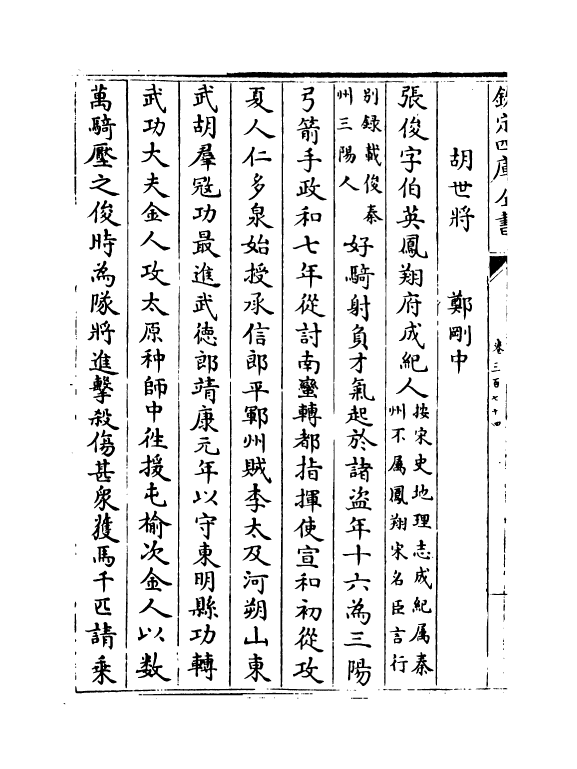 欽定四庫全書
卷三百七十四
胡世將　鄭剛中
張俊字伯英鳳翔府成紀人按宋史地理志成紀属秦州不属鳳翔宋名臣言行
别録載俊秦州三陽人好騎射負才氣起於諸盜年十六為三陽
弓箭手政和七年從討南蠻轉都指揮使宣和初從攻
夏人仁多泉始授承信郎平鄆州賊李太及河朔山東
武胡羣冦功最進武德郎靖康元年以守東明縣功轉
武功大夫金人攻太原种師中往援屯榆次金人以数
萬騎壓之俊時為隊將進擊殺傷甚衆獲馬千匹請乗